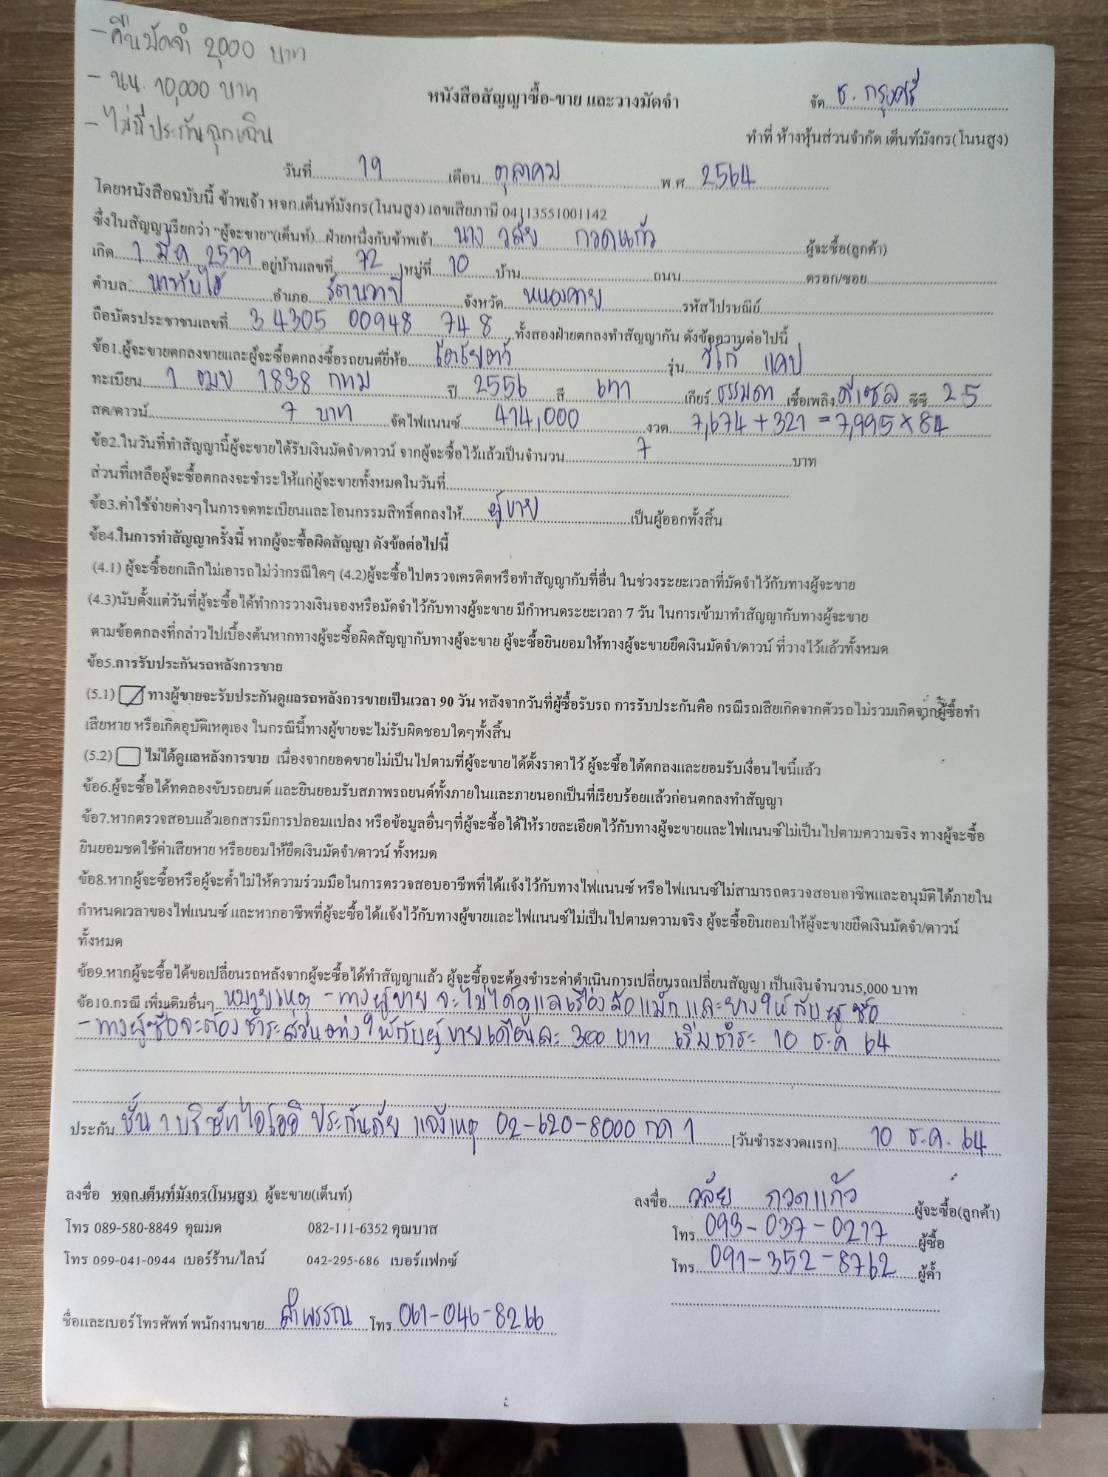 - คืนมัดจำ 2,000 บาท
- นน. 10,000 บาท
- ไม่มีประกันฉุกเฉิน
หนังสือสัญญาซื้อ-ขาย และวางมัดจำ
จัด ธ. กรุงศรี
ทำที่ ห้างหุ้นส่วนจำกัด เต็นท์มังกร(โนนสูง)
วันที่ 19 เดือน ตุลาคม พ.ศ. 2564
โดยหนังสือฉบับนี้ ข้าพเจ้า หจก.เต็นท์มังกร(โนนสูง) เลขเสียภาษี 04113551001142
ซึ่งในสัญญาเรียกว่า "ผู้จะขาย"(เต็นท์)...ฝ่ายหนึ่งกับข้าพเจ้า นาง วลัย กวดแก้ว ผู้จะซื้อ(ลูกค้า)
เกิด 1 มี.ค 2519 อยู่บ้านเลขที่ 72 หมู่ที่ 10 บ้าน ถนน ตรอก/ซอย
ตำบล นาทับไฮ อำเภอ รัตนวาปี จังหวัด หนองคาย รหัสไปรษณีย์
ถือบัตรประชาชนเลขที่ 3 4305 00948 74 8 ทั้งสองฝ่ายตกลงทำสัญญากัน ดังข้อความต่อไปนี้
ข้อ1.ผู้จะขายตกลงขายและผู้จะซื้อตกลงซื้อรถยนต์ยี่ห้อ โตโยต้า รุ่น วีโก้ แคป
ทะเบียน 1 ฒฆ 1838 กทม ปี 2556 สี เทา เกียร์ ธรรมดา เชื้อเพลิง ดีเซล ซีซี 2.5
สด/ดาวน์ 7 บาท จัดไฟแนนซ์ 414,000 งวด 7,674 + 321 = 7,995 x 84
ข้อ2.ในวันที่ทำสัญญานี้ผู้จะขายได้รับเงินมัดจำ/ดาวน์ จากผู้จะซื้อไว้แล้วเป็นจำนวน 7 บาท
ส่วนที่เหลือผู้จะซื้อตกลงจะชำระให้แก่ผู้จะขายทั้งหมดในวันที่
ข้อ3.ค่าใช้จ่ายต่างๆในการจดทะเบียนและโอนกรรมสิทธิ์ตกลงให้ ผู้ขาย เป็นผู้ออกทั้งสิ้น
ข้อ4.ในการทำสัญญาครั้งนี้ หากผู้จะซื้อผิดสัญญา ดังข้อต่อไปนี้
(4.1) ผู้จะซื้อยกเลิกไม่เอารถไม่ว่ากรณีใดๆ (4.2)ผู้จะซื้อไปตรวจเครดิตหรือทำสัญญากับที่อื่น ในช่วงระยะเวลาที่มัดจำไว้กับทางผู้จะขาย
(4.3)นับตั้งแต่วันที่ผู้จะซื้อได้ทำการวางเงินจองหรือมัดจำไว้กับทางผู้จะขาย มีกำหนดระยะเวลา 7 วัน ในการเข้ามาทำสัญญากับทางผู้จะขาย
ตามข้อตกลงที่กล่าวไปเบื้องต้นหากทางผู้จะซื้อผิดสัญญากับทางผู้จะขาย ผู้จะซื้อยินยอมให้ทางผู้จะขายยึดเงินมัดจำ/ดาวน์ ที่วางไว้แล้วทั้งหมด
ข้อ5.การรับประกันรถหลังการขาย
(5.1) ทางผู้ขายจะรับประกันดูแลรถหลังการขายเป็นเวลา 90 วัน หลังจากวันที่ผู้ซื้อรับรถ การรับประกันคือ กรณีรถเสียเกิดจากตัวรถไม่รวมเกิดจากผู้ซื้อทำ
เสียหาย หรือเกิดอุบัติเหตุเอง ในกรณีนี้ทางผู้ขายจะไม่รับผิดชอบใดๆทั้งสิ้น
(5.2) ไม่ได้ดูแลหลังการขาย เนื่องจากยอดขายไม่เป็นไปตามที่ผู้จะขายได้ตั้งราคาไว้ ผู้จะซื้อได้ตกลงและยอมรับเงื่อนไขนี้แล้ว
ข้อ6.ผู้จะซื้อได้ทดลองขับรถยนต์ และยินยอมรับสภาพรถยนต์ทั้งภายในและภายนอกเป็นที่เรียบร้อยแล้วก่อนตกลงทำสัญญา
ข้อ7.หากตรวจสอบแล้วเอกสารมีการปลอมแปลง หรือข้อมูลอื่นๆที่ผู้จะซื้อได้ให้รายละเอียดไว้กับทางผู้จะขายและไฟแนนซ์ไม่เป็นไปตามความจริง ทางผู้จะซื้อ
ยินยอมชดใช้ค่าเสียหาย หรือยอมให้ยึดเงินมัดจำ/ดาวน์ ทั้งหมด
ข้อ8.หากผู้จะซื้อหรือผู้จะค้ำไม่ให้ความร่วมมือในการตรวจสอบอาชีพที่ได้แจ้งไว้กับทางไฟแนนซ์ หรือไฟแนนซ์ไม่สามารถตรวจสอบอาชีพและอนุมัติได้ภายใน
กำหนดเวลาของไฟแนนซ์ และหากอาชีพที่ผู้จะซื้อได้แจ้งไว้กับทางผู้ขายและไฟแนนซ์ไม่เป็นไปตามความจริง ผู้จะซื้อยินยอมให้ผู้จะขายยึดเงินมัดจำ/ดาวน์
ทั้งหมด
ข้อ9.หากผู้จะซื้อได้ขอเปลี่ยนรถหลังจากผู้จะซื้อได้ทำสัญญาแล้ว ผู้จะซื้อจะต้องชำระค่าดำเนินการเปลี่ยนรถเปลี่ยนสัญญา เป็นเงินจำนวน5,000 บาท
ข้อ10.กรณี เพิ่มเติมอื่นๆ หมายเหตุ - ทางผู้ขาย จะไม่ได้ดูแลเรื่อง ล้อแม็ก และยาง ให้กับผู้ซื้อ
- ทางผู้ซื้อจะต้องชำระส่วนต่าง ให้กับผู้ขายเดือนละ 300 บาท เริ่มชำระ 10 ธ.ค 64
ประกัน ชั้น 1 บริษัทไอโออิ ประกันภัย แจ้งเหตุ 02-620-8000 กด 1 [วันชำระงวดแรก] 10 ธ.ค. 64
ลงชื่อ หจก.เต็นท์มังกร(โนนสูง) ผู้จะขาย(เต็นท์)
ลงชื่อ วลัย กวดแก้ว ผู้จะซื้อ(ลูกค้า)
โทร 089-580-8849 คุณมด 082-111-6352 คุณบาส
โทร 093-037-0217 ผู้ซื้อ
โทร 099-041-0944 เบอร์ร้าน/ไลน์ 042-295-686 เบอร์แฟกซ์
โทร 091-352-8762 ผู้ค้ำ
ชื่อและเบอร์โทรศัพท์ พนักงานขาย ลำพรรณ โทร 061-046-8266